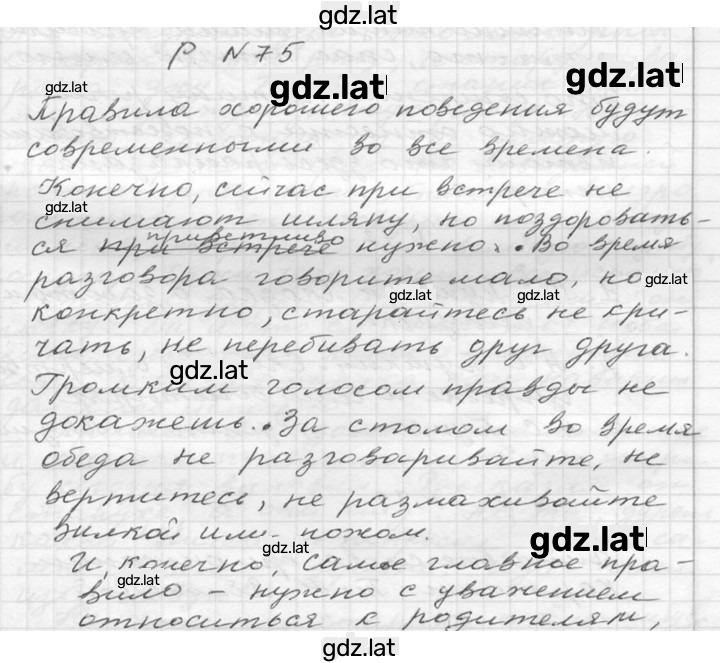 gdz.lat
Р №75
gdz.lat
gdz.lat
gdz.lat
Правила хорошего поведения будут
современными во все времена.
Конечно, сийчас при встрече не
gdz.lat
снимают шляпу, но поздоровать-
приветливо
ся при встрече нужно. Во время
разговора говорите мало, но
gdz.lat
gdz.lat
gdz.lat
конкретно, старайтесь не кри-
чать, не перебивать друг друга.
gdz.lat
Громким голосом правды не
докажешь. За столом во время
обеда не разговаривайте, не
вертитесь, не размахивайте
вилкой или ножом.
gdz.lat
gdz.lat
И, конечно, самое главное пра-
gdz.lat
вило - нужно с уважением
относиться к родителям,
gdz.lat